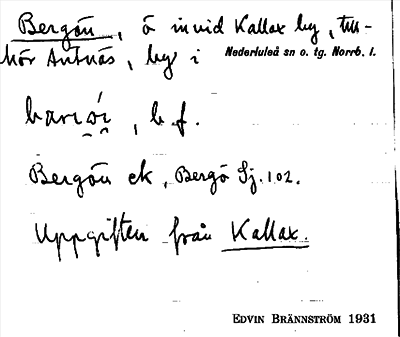 Bergön, ö invid Kallax by, till-
hör Antnäs, by i Nederluleå sn o. tg. Norrb. l.
, b.f.
Bergön ek, Bergö Sj. 102.
Uppgiften från Kallax.
EDVIN BRÄNNSTRÖM 1931